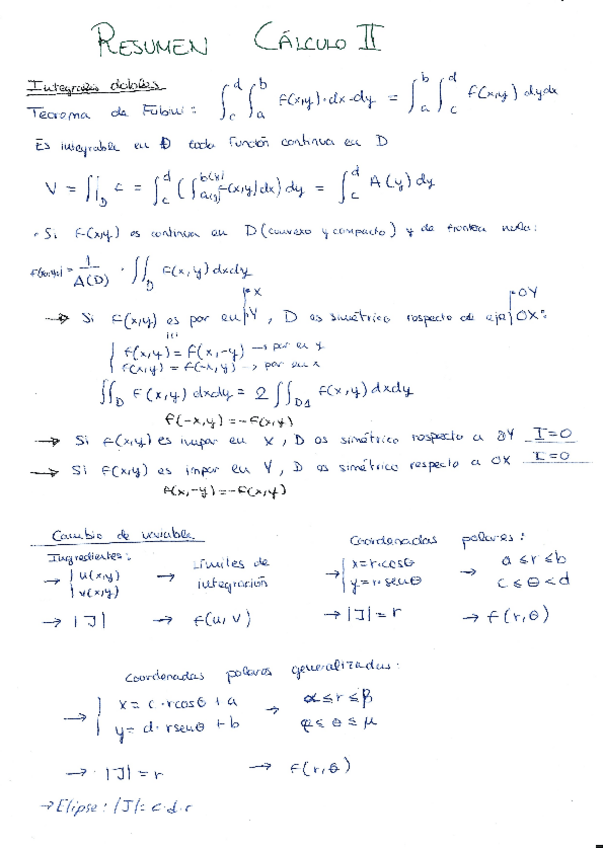 RESUMEN CÁLCULO II
Integrales dobles
Teorema de Fubini: ∫_c^d ∫_a^b f(x,y)·dx·dy = ∫_a^b ∫_c^d f(x,y) dydx
Es integrable en D toda función continua en D
V = ∬_D f = ∫_c^d (∫ f(x,y)dx) dy = ∫_c^d A(y) dy
· Si f(x,y) es continua en D (convexo y compacto) y de frontera nula:
= 1/A(D) · ∬_D f(x,y) dxdy
→ Si f(x,y) es par en |X |Y, D es simétrico respecto de eje |OY |OX:
f(x,y) = f(x,-y) → par en y
f(x,y) = f(-x,y) → par en x
∬_D f(x,y) dxdy = 2 ∬_D1 f(x,y) dxdy
f(-x,y) = -f(x,y)
→ Si f(x,y) es impar en X, D es simétrico respecto a OY I=0
→ Si f(x,y) es impar en Y, D es simétrico respecto a OX I=0
f(x,-y) = -f(x,y)
Cambio de variable
Ingredientes:
→ | u(x,y) → Límites de
| v(x,y) integración
→ |J| → f(u,v)
Coordenadas polares:
→ | x=r·cosθ → a≤r≤b
| y=r·senθ c≤θ<d
→ |J|=r → f(r,θ)
Coordenadas polares generalizadas:
→ | x = c·rcosθ + a → α≤r≤β
| y = d·rsenθ + b φ≤θ≤μ
→ |J|=r → f(r,θ)
→ Elipse: |J|= c·d·r